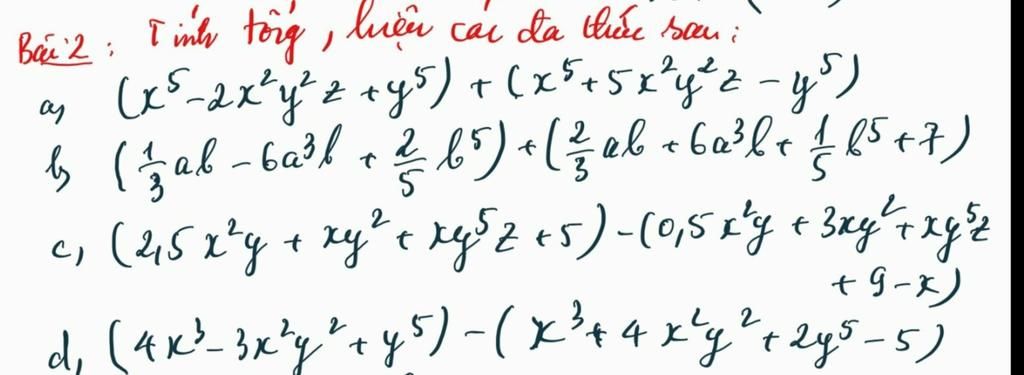 Bài 2: Tính tổng, hiệu các đa thức sau:
a, (x⁵ - 2x²y²z + y⁵) + (x⁵ + 5x²y²z - y⁵)
b, (1/3 ab - 6a³b + 2/5 b⁵) + (2/3 ab + 6a³b + 1/5 b⁵ + 7)
c, (2,5x²y + xy² + xy⁵z + 5) - (0,5x²y + 3xy² + xy⁵z
+ 9 - x)
d, (4x³ - 3x²y² + y⁵) - (x³ + 4x²y² + 2y⁵ - 5)